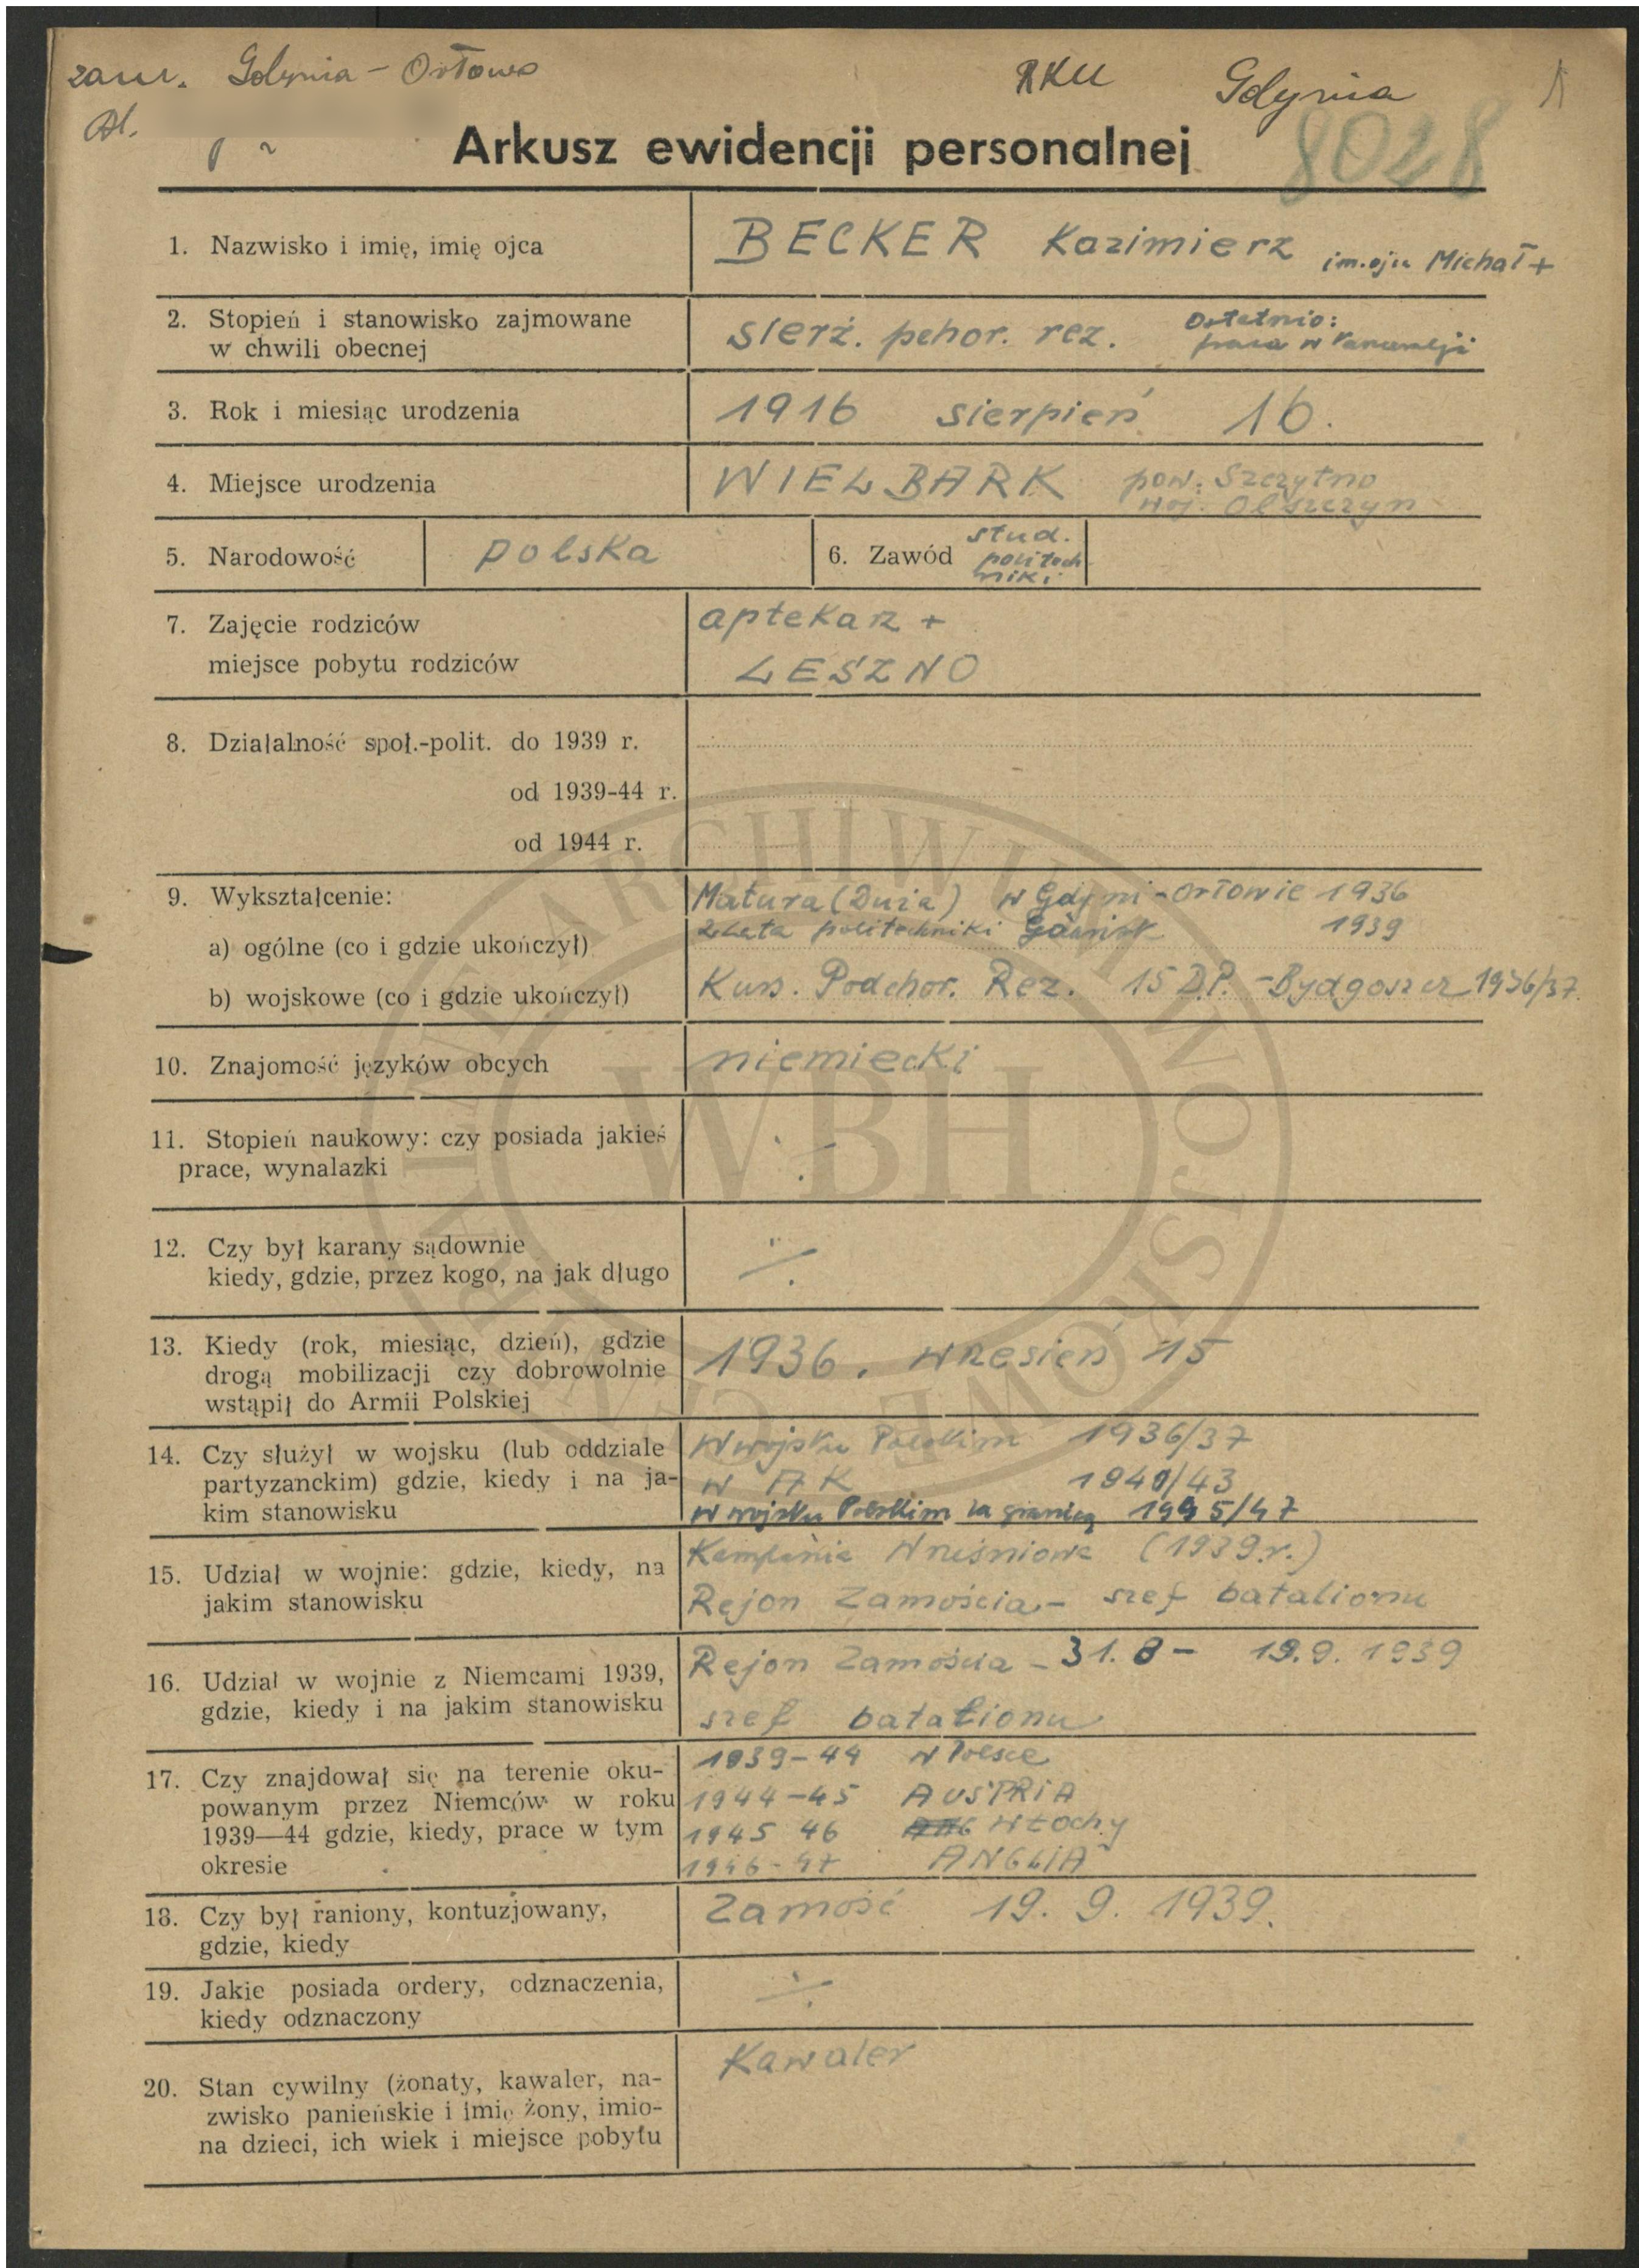 zam. Gdynia - Orłowo
RKU Gdynia
Al.
8028
Arkusz ewidencji personalnej
1. Nazwisko i imię, imię ojca
BECKER Kazimierz im. ojca Michał +
2. Stopień i stanowisko zajmowane
w chwili obecnej
sierż. pchor. rez. Ostatnio:
praca w
3. Rok i miesiąc urodzenia
1916 sierpień 16.
4. Miejsce urodzenia
WIELBARK pow. Szczytno
woj. Olszczyn
5. Narodowość
polska
6. Zawód
stud.
politech
niki
7. Zajęcie rodziców
aptekarz +
miejsce pobytu rodziców
LESZNO
8. Działalność społ.-polit. do 1939 r.
od 1939-44 r.
od 1944 r.
9. Wykształcenie:
Matura (Duża) w Gdyni-Orłowie 1936
a) ogólne (co i gdzie ukończył)
2 lata politechniki Gdańsk 1939
b) wojskowe (co i gdzie ukończył)
Kurs. Podchor. Rez. 15 D.P. - Bydgoszcz 1936/37.
10. Znajomość języków obcych
niemiecki
11. Stopień naukowy: czy posiada jakieś
prace, wynalazki
12. Czy był karany sądownie
kiedy, gdzie, przez kogo, na jak długo
13. Kiedy (rok, miesiąc, dzień), gdzie
drogą mobilizacji czy dobrowolnie
wstąpił do Armii Polskiej
1936. wrzesień 15
14. Czy służył w wojsku (lub oddziale
partyzanckim) gdzie, kiedy i na ja-
kim stanowisku
W wojsku Polskim 1936/37
w AK 1940/43
w wojsku Polskim za granicą 1945/47
15. Udział w wojnie: gdzie, kiedy, na
jakim stanowisku
Kampania Wrześniowa (1939.r.)
Rejon Zamościa - szef batalionu
16. Udział w wojnie z Niemcami 1939,
gdzie, kiedy i na jakim stanowisku
Rejon Zamościa - 31.8 - 19.9.1939
szef batalionu
17. Czy znajdował się na terenie oku-
powanym przez Niemców w roku
1939—44 gdzie, kiedy, prace w tym
okresie
1939-44 w Polsce
1944-45 AUSTRIA
1945 46 Włochy
1946-47 ANGLIA
18. Czy był raniony, kontuzjowany,
gdzie, kiedy
Zamość 19. 9. 1939.
19. Jakie posiada ordery, odznaczenia,
kiedy odznaczony
20. Stan cywilny (żonaty, kawaler, na-
zwisko panieńskie i imię żony, imio-
na dzieci, ich wiek i miejsce pobytu
Kawaler
WBH